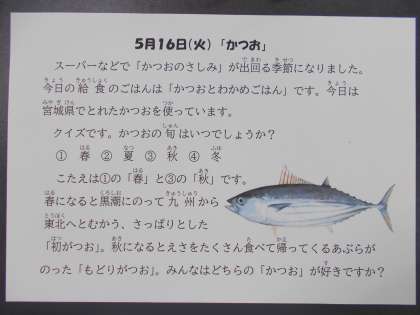 5月16日(火)「かつお」
スーパーなどで「かつおのさしみ」が出回る季節になりました。
今日の給食のごはんは「かつおとわかめごはん」です。今日は
宮城県でとれたかつおを使っています。
クイズです。かつおの旬はいつでしょうか?
① 春 ② 夏 ③ 秋 ④ 冬
こたえは①の「春」と③の「秋」です。
春になると黒潮にのって九州から
東北へとむかう、さっぱりとした
「初がつお」。秋になるとえさをたくさん食べて帰ってくるあぶらが
のった「もどりがつお」。みんなはどちらの「かつお」が好きですか?